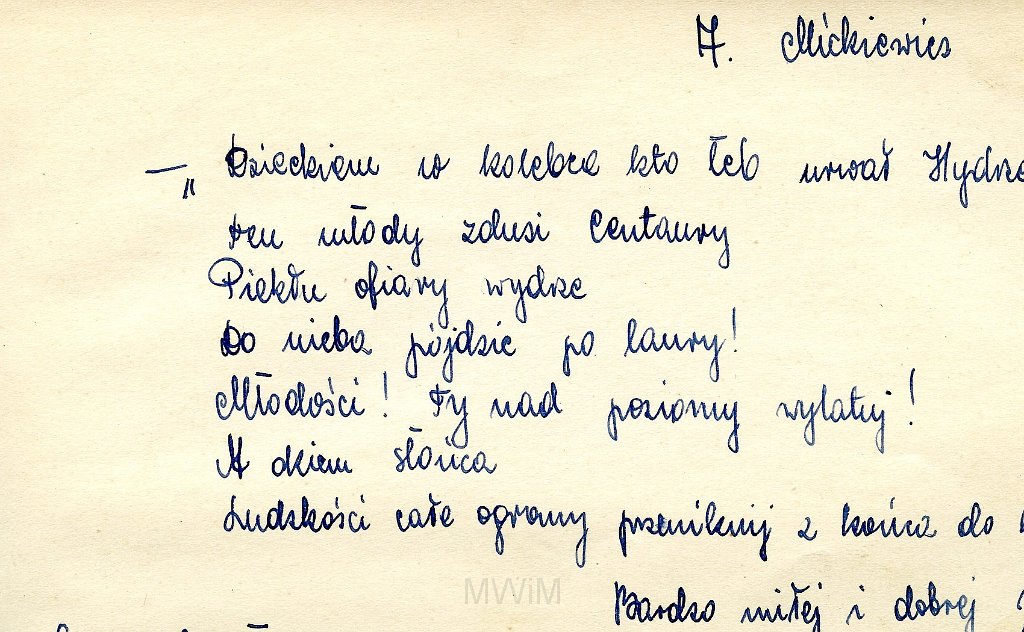 A. Mickiewicz
— „Dzieckiem w kolebce kto łeb urwał Hydrze
ten młody zdusi Centaury
Piekłu ofiary wydrze
Do nieba pójdzie po laury!
Młodości! Ty nad poziomy wylatuj!
A okiem słońca
Ludzkości całe ogromy przeniknij z końca do
MWiM
Bardzo miłej i dobrej